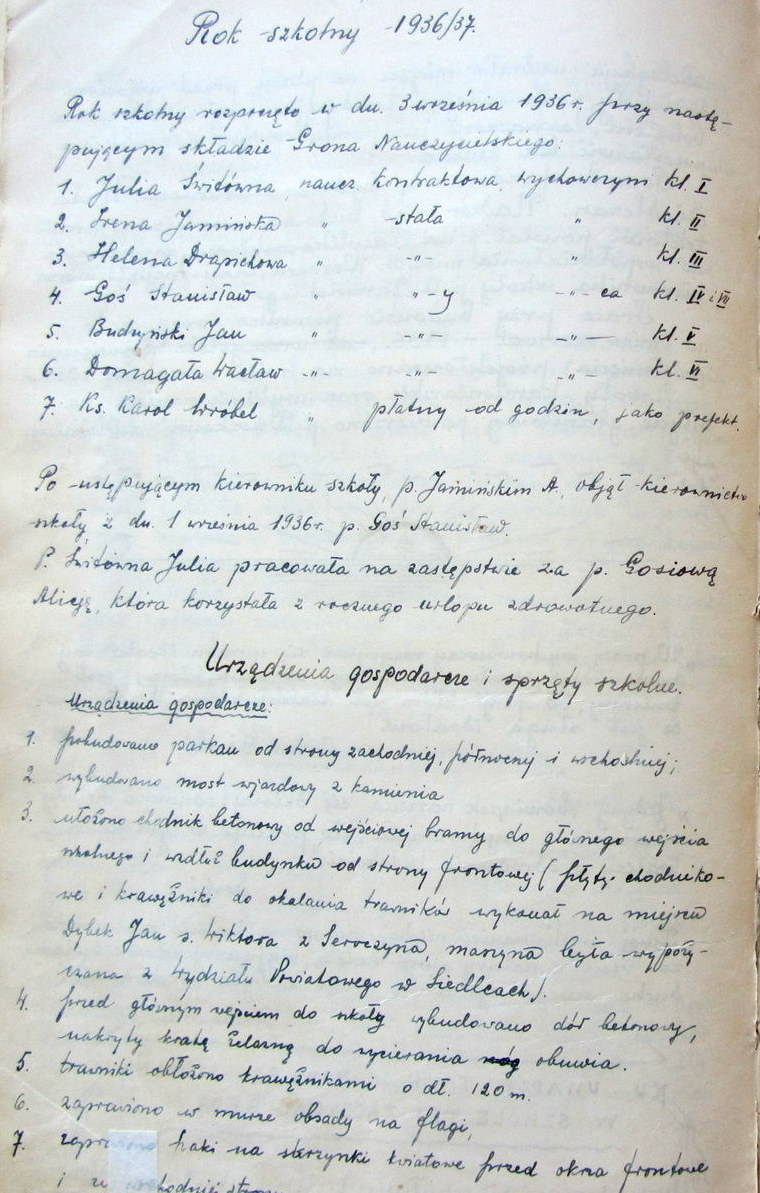 Rok szkolny 1936/37.
Rok szkolny rozpoczęto w dn. 3 września 1936 r. przy nastę-
pującym składzie Grona Nauczycielskiego:
1. Julia Świtówna, naucz. kontraktowa, wychowczyni kl. I
2. Irena Jamińska " stała " kl. II
3. Helena Drapichowa " -"- " kl. III
4. Goś Stanisław " "-y -"- ca kl. IV i VII
5. Budzyński Jan " -"- -"- kl. V
6. Domagała Wacław -"- -"- -"- kl. VI
7. Ks. Karol Wróbel " płatny od godzin, jako prefekt.
Po ustępującym kierowniku szkoły, p. Jamińskim A., objął kierownictwo
szkoły z dn. 1 września 1936 r. p. Goś Stanisław.
P. Świtówna Julia pracowała na zastępstwie za p. Gosiową
Alicję, która korzystała z rocznego urlopu zdrowotnego.
Urządzenia gospodarcze i sprzęty szkolne.
Urządzenia gospodarcze:
1. pobudowano parkan od strony zachodniej, północnej i wschodniej;
2. wybudowano most wjazdowy z kamienia
3. ułożono chodnik betonowy od wejściowej bramy do głównego wejścia
szkolnego i wzdłuż budynku od strony frontowej (płyty chodniko-
we i krawężniki do okalania trawników wykonał na miejscu
Dybek Jan s. Wiktora z Seroczyna, maszyna była wypoży-
czana z Wydziału Powiatowego w Siedlcach).
4. przed głównym wejściem do szkoły wybudowano dół betonowy,
nakryty kratą żelazną do wycierania nóg obuwia.
5. trawniki obłożono krawężnikami o dł. 120 m.
6. zaprawiono w murze obsady na flagi,
7. zaprawiono haki na skrzynki kwiatowe przed okna frontowe
i